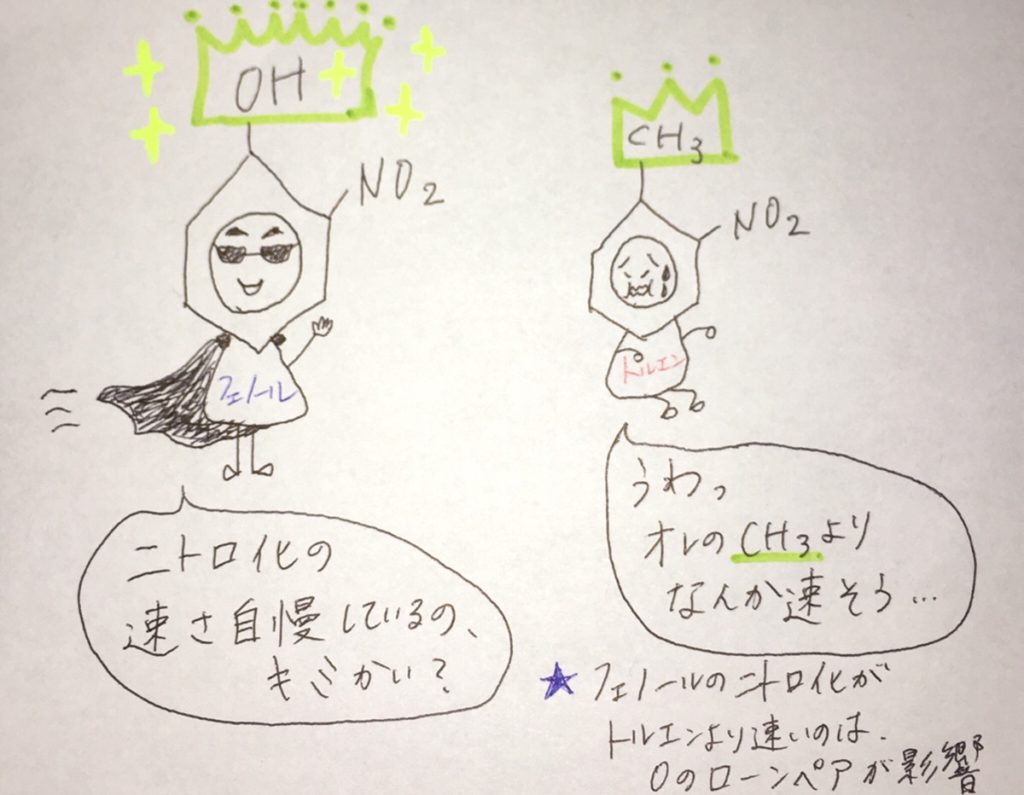 OH
NO2
フェノール
ニトロ化の
速さ自慢しているの、
キミかい?
CH3
NO2
トルエン
うわっ
オレのCH3より
なんか速そう…
★ フェノールのニトロ化が
トルエンより速いのは、
Oのローンペアが影響